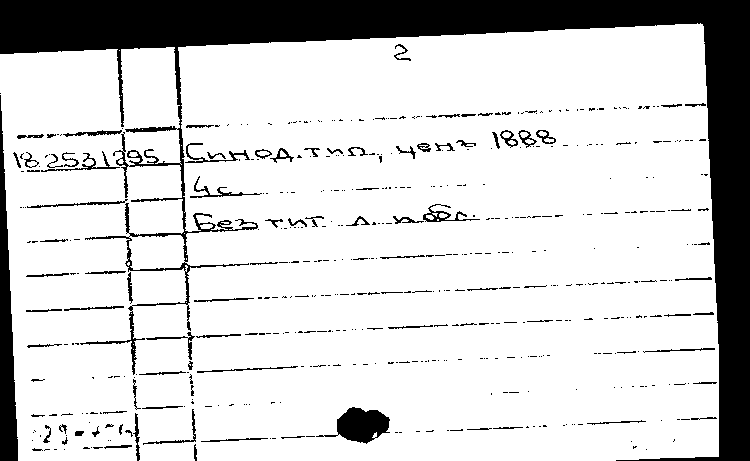 2
18.253.1295 Синод. тип., ценз 1888
4 с.
Без тит. л. и обл.